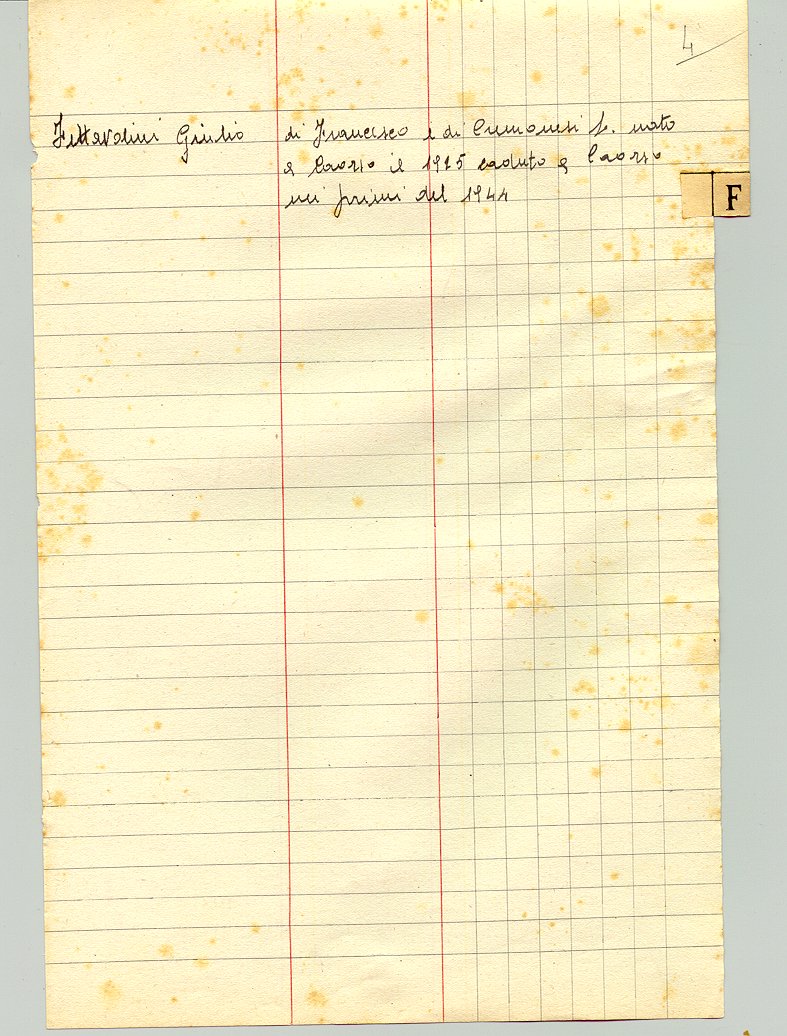 4
Fittavolini Giulio di Francesco e di Cremonesi L. nato
a Caorso il 1925 caduto a Caorso
nei primi del 1944
F